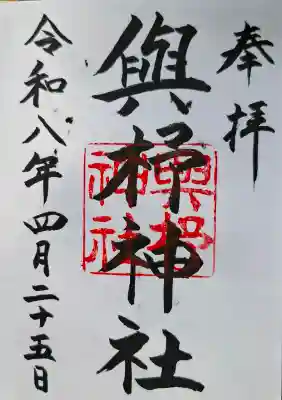 奉拝
與杼神社
與杼
神社
令和八年四月二十五日